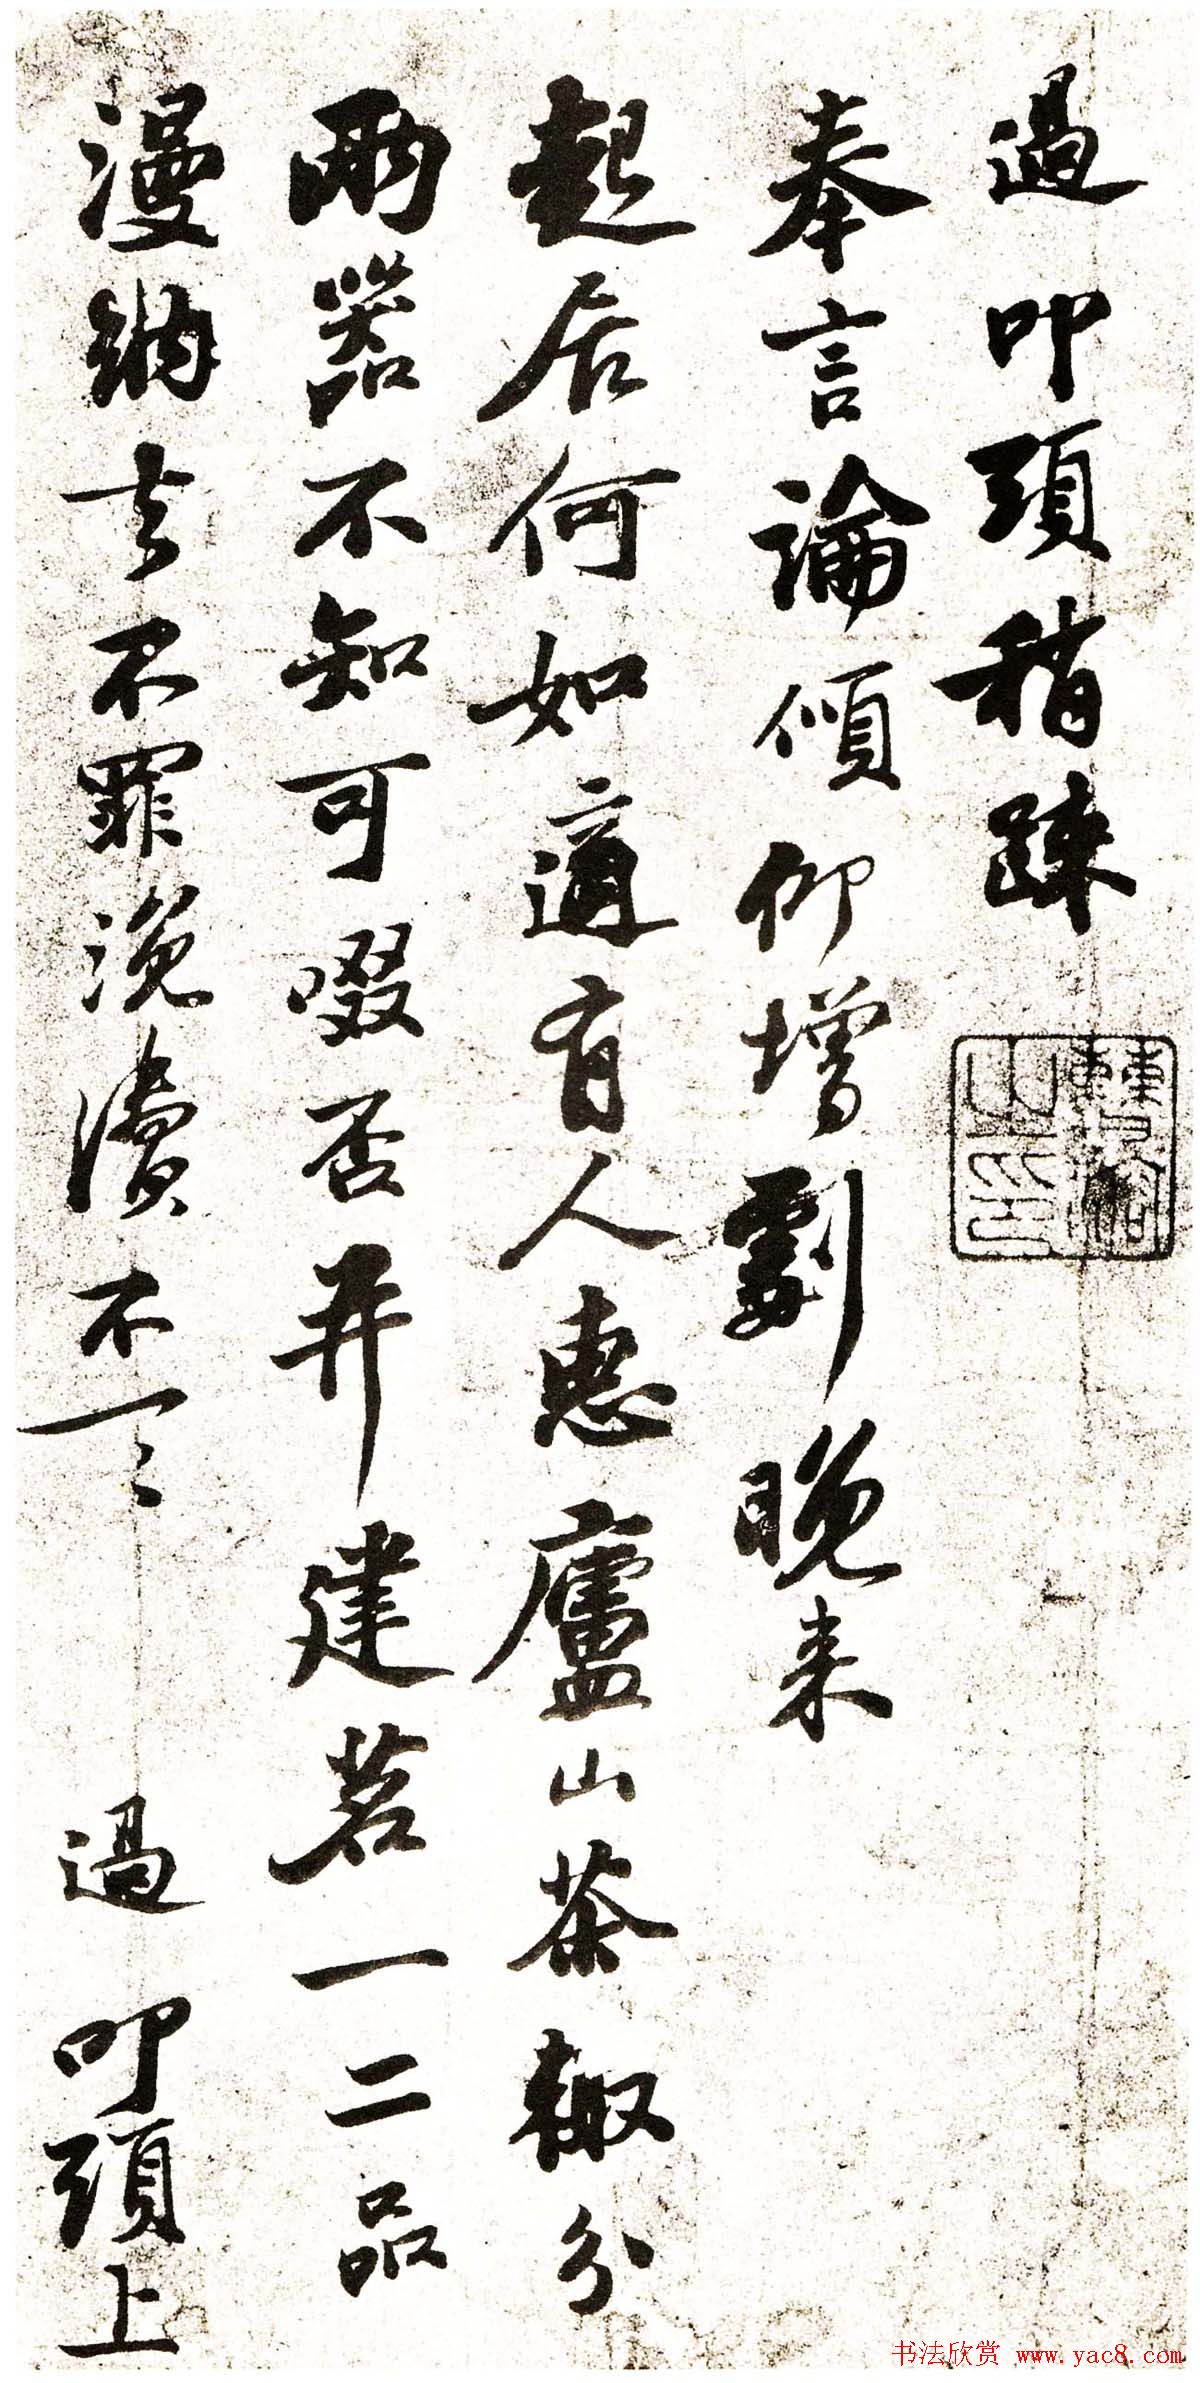 過叩頭稍疎
奉言論傾仰增劇晚来
起居何如適有人惠廬山茶輙分
兩器不知可啜否并建茗一二品
漫納去不罪浼瀆不一一 過叩頭上
之印
书法欣赏 www.yac8.com